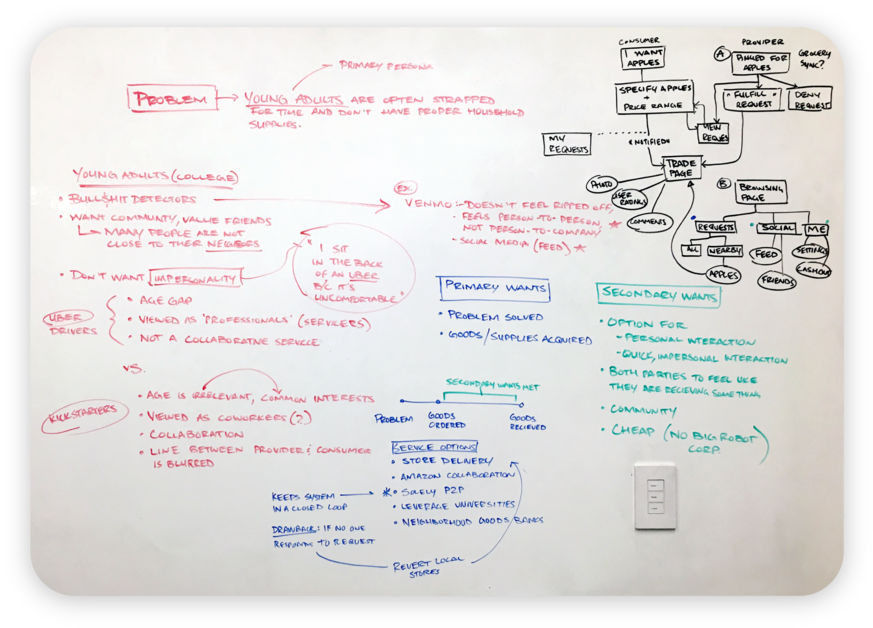 PRIMARY PERSONA
PROBLEM → YOUNG ADULTS ARE OFTEN STRAPPED
FOR TIME AND DON'T HAVE PROPER HOUSEHOLD
SUPPLIES.
YOUNG ADULTS (COLLEGE)
• BULL$HIT DETECTORS
• WANT COMMUNITY, VALUE FRIENDS
MANY PEOPLE ARE NOT
CLOSE TO THEIR NEIGHBORS
• DON'T WANT IMPERSONALITY
"I SIT
IN THE BACK
OF AN UBER
B/C IT'S
UNCOMFORTABLE"
UBER
DRIVERS
• AGE GAP
• VIEWED AS 'PROFESSIONALS' (SERVICERS)
• NOT A COLLABORATIVE SERVICE
VS.
KICKSTARTERS
• AGE IS IRRELEVANT, COMMON INTERESTS
• VIEWED AS COWORKERS (?)
• COLLABORATION
• LINE BETWEEN PROVIDER & CONSUMER
IS BLURRED
EX.
VENMO:
- DOESN'T FEEL RIPPED OFF,
- FEELS PERSON-TO-PERSON
NOT PERSON-TO-COMPANY
- SOCIAL MEDIA (FEED)
PRIMARY WANTS
• PROBLEM SOLVED
• GOODS/SUPPLIES ACQUIRED
SECONDARY WANTS MET
PROBLEM
GOODS
ORDERED
GOODS
RECIEVED
SERVICE OPTIONS
• STORE DELIVERY
• AMAZON COLLABORATION
• SOLELY P2P
• LEVERAGE UNIVERSITIES
• NEIGHBORHOOD GOODS BANKS
KEEPS SYSTEM
IN A CLOSED LOOP
DRAWBACK: IF NO ONE
RESPONDS TO REQUEST
REVERT LOCAL
STORES
SECONDARY WANTS
• OPTION FOR
- PERSONAL INTERACTION
- QUICK, IMPERSONAL INTERACTION
• BOTH PARTIES TO FEEL LIKE
THEY ARE RECIEVING SOMETHING
• COMMUNITY
• CHEAP (NO BIG ROBOT
CORP.)
CONSUMER
I WANT
APPLES
SPECIFY APPLES
+
PRICE RANGE
MY
REQUESTS
NOTIFIED
PROVIDER
A
PINGED FOR
APPLES
GROCERY
SYNC?
FULFILL
REQUEST
DENY
REQUEST
VIEW
REQUEST
TRADE
PAGE
AUTO
USER
RATINGS
COMMENTS
B
BROWSING
PAGE
REQUESTS
SOCIAL
ME
ALL
NEARBY
FEED
SETTINGS
APPLES
FRIENDS
CASHOUT